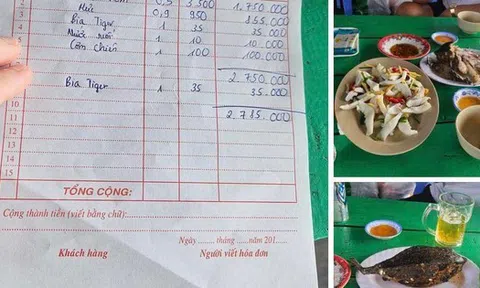 0,5 3.500 1.750.000
Mức 0,9 950 855.000
Bia Tiger 1 35 35.000
Nước suối 1 10 10.000
Cơm chiên 1 100 100.000
2.750.000
Bia Tiger 1 35 35.000
10
11 2.785.000
12
13
14
15
TỔNG CỘNG:
Cộng thành tiền (viết bằng chữ):
Ngày ........ tháng ...... năm 201......
Khách hàng Người viết hóa đơn